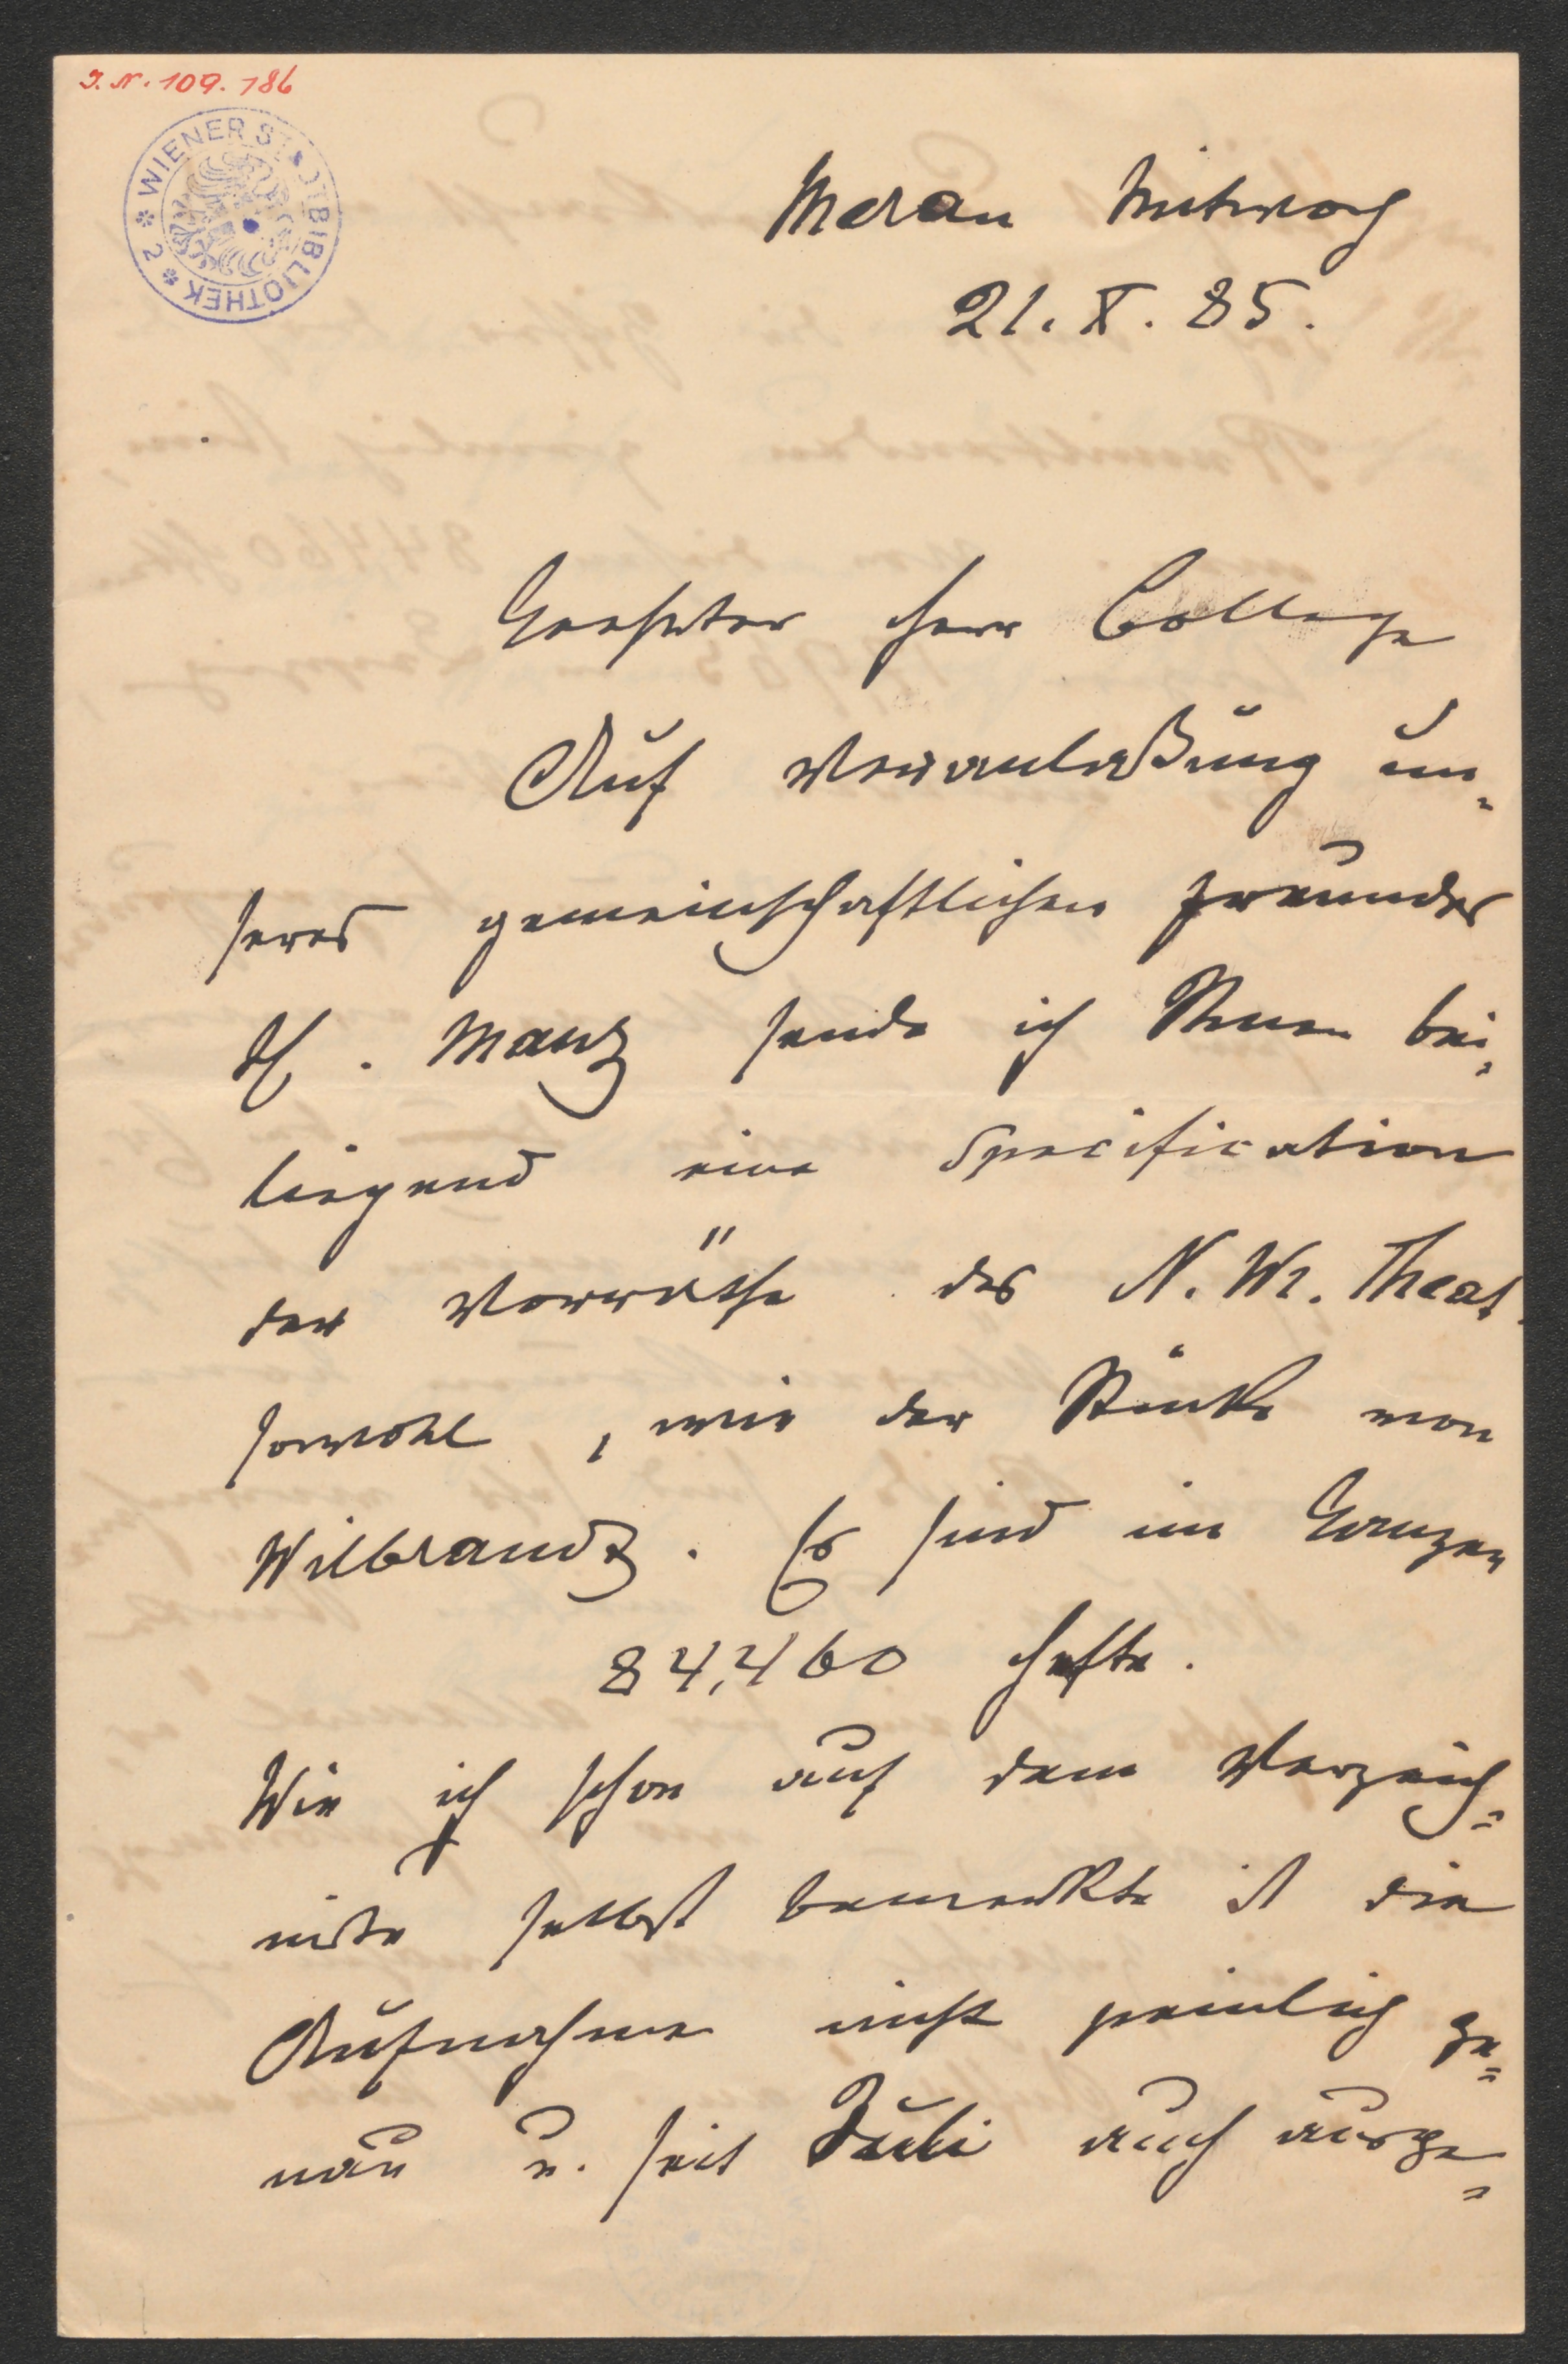 J. N. 109.186
WIENER STADTBIBLIOTHEK 2
Meran Mittwoch
21. X. 85.
Geehrter Herr College
Auf Veranlaßung un-
seres gemeinschaftlichen Freundes
H. Manz sende ich Ihnen bei-
liegend eine Specification
der Vorräthe des N. Wr. Theat.
sowohl, wie der Stücke von
Wilbrandt. Es sind im Ganzen
84,460 Hefte.
Wie ich schon auf dem Verzeich=
niße selbst bemerkte ist die
Aufnahme nicht peinlich ge=
nau u. seit Juli auch ausge=